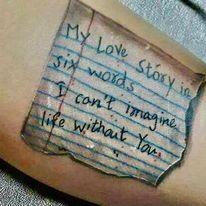 My Love Story in
six words
I can't imagine
life without You.